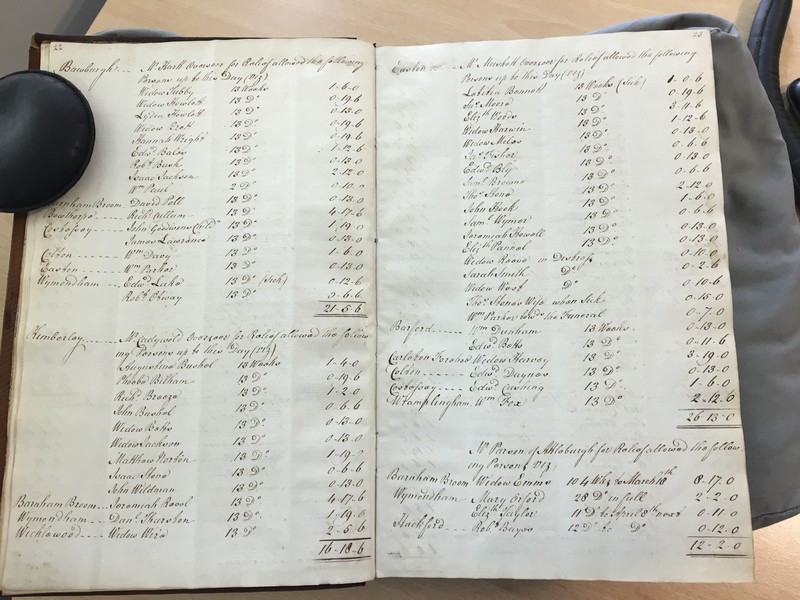 22
Bawburgh Mr. Hart Overseer for Relief allowed the following
Persons up to this Day (Viz)
Widow Tubby 13 Weeks 1-6-0
Widow Howlett 13 Do. 0-19-6
Lydia Howlett 13 Do. 0-13-0
Widow 13 Do. 0-19-6
Hannah Wright 13 Do. 0-19-6
Edwd. Bales 13 Do. 1-12-6
Robt. Bush 13 Do. 0-13-0
Isaac Jackson 13 Do. 2-12-0
Wm. Paul 2 Do. 0-10-0
Barnham Broom David Poll 13 Do. 0-13-0
Bowthorpe Richd. Allum 13 Do. 4-17-6
Costessey John Goddwins Child 13 Do. 1-19-0
James Lawrance 13 Do. 0-13-0
Colton Wm. Davy 13 Do. 1-6-0
Easton Wm. Parker 13 Do. 0-13-0
Wymondham Edwd. Lake 13 Do. (Sick) 0-12-6
Robt. Otway 13 Do. 0-6-6
21-5-6
Kimberley Mr. Overseer for Relief allowed the follow
ing Persons up to this Day (Viz)
Augustine Bushel 13 Weeks 1-4-0
Phoebe Bilham 13 Do. 0-19-6
Richd. Breeze 13 Do. 1-2-0
John Bushel 13 Do. 0-6-6
Widow Botts 13 Do. 0-13-0
Widow Jackson 13 Do. 0-13-0
Matthew Norton 13 Do. 1-19-0
Isaac Stone 13 Do. 0-6-6
John Wildman 13 Do. 0-13-0
Barnham Broom Jeremiah 13 Do. 4-17-6
Wymondham Danl. Thurston 13 Do. 1-19-0
Wicklewood Widow 13 Do. 2-5-6
16-18-6
23
Easton Mr. Overseer for Relief allowed the following
Persons up to this Day (Viz)
Letitia Bennett 13 Weeks (Sick) 1-0-6
Jas. Meers 13 Do. 0-19-6
Elizth. Woods 13 Do. 3-11-6
Widow Harwin 13 Do. 1-12-6
Widow Miles 13 Do. 0-13-0
Jas. 13 Do. 0-6-6
Edwd. Bly 13 Do. 0-13-0
Saml. Browne 13 Do. 0-6-6
Thos. Stone 13 Do. 2-12-0
John Hook 13 Do. 1-6-0
Saml. Wymer 13 Do. 0-6-6
Jeremiah Howell 13 Do. 0-13-0
Elizth. 13 Do. 0-13-0
Widow Reeve in Distress 0-10-0
Sarah Smith Do. 0-2-6
Widow West Do. 0-10-6
Thos. Stones Wife when Sick 0-15-0
Wm. Parker towds. the Funeral 0-7-0
Barford Wm. Dunham 13 Weeks 0-13-0
Edwd. Botts 13 Do. 0-11-6
Carleton Forehoe Widow Harvey 13 Do. 3-19-0
Colton Edwd. Daynes 13 Do. 0-13-0
Costessey Edwd. Cushing 13 Do. 1-6-0
Wramplingham Wm. Fox 13 Do. 2-12-6
26-13-0
Mr. Parson of Attleburgh for Relief allowed the follow
ing Persons Viz
Barnham Broom Widow Emms 104 Wks. to March 18th 8-17-0
Wymondham Mary Orford 28 Do. in full 2-2-0
Elizth. Taylor 11 Do. to April 8th next 0-11-0
Hackford Robt. Bayes 12 Do. to Do. 0-12-0
12-2-0